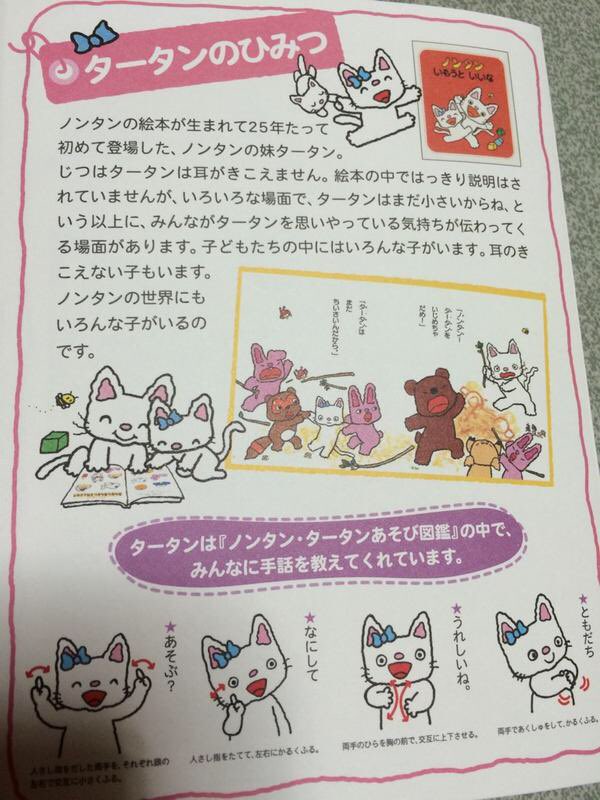 タータンのひみつ
ノンタン
いもうと いいな
ノンタンの絵本が生まれて25年たって
初めて登場した、ノンタンの妹タータン。
じつはタータンは耳がきこえません。絵本の中ではっきり説明はさ
れていませんが、いろいろな場面で、タータンはまだ小さいからね、と
いう以上に、みんながタータンを思いやっている気持ちが伝わってく
る場面があります。子どもたちの中にはいろんな子がいます。耳のき
こえない子もいます。
ノンタンの世界にも
いろんな子がいるの
です。
「ノンタン!
タータンを
いじめちゃ
だめ!」
「タータンは
まだ
ちいさいんだから!」
タータンは『ノンタン・タータンあそび図鑑』の中で、
みんなに手話を教えてくれています。
★あそぶ?
人さし指をだした両手を、それぞれ顔の
左右で交互に小さくふる。
★なにして
人さし指をたてて、左右にかるくふる。
★うれしいね。
両手のひらを胸の前で、交互に上下させる。
★ともだち
両手であくしゅをして、かるくふる。